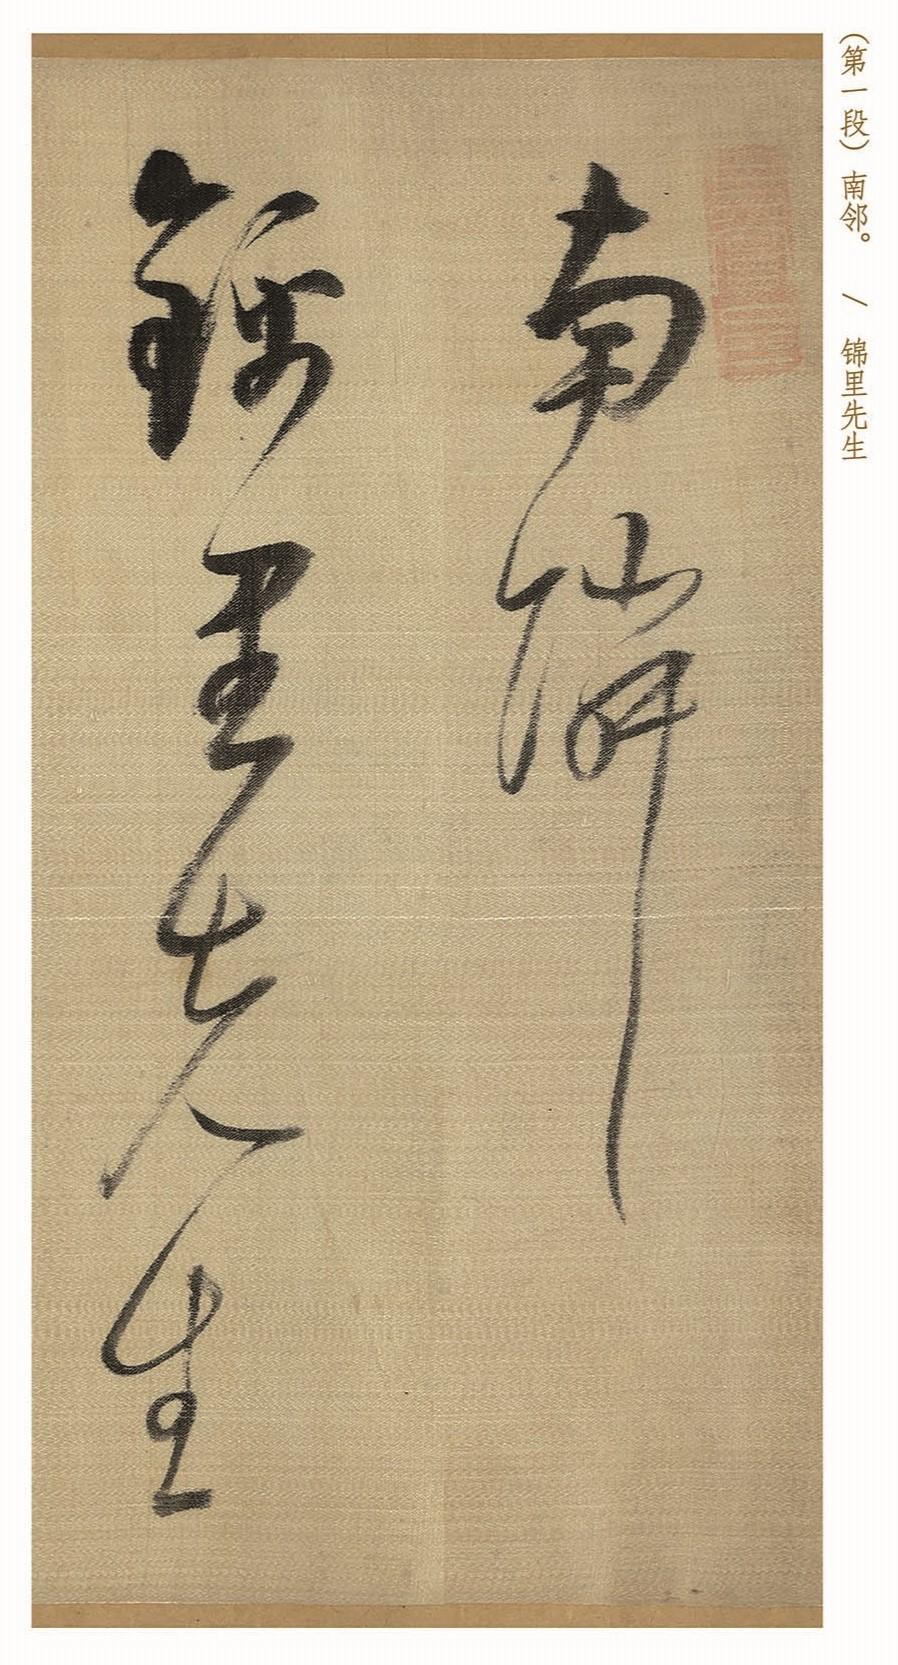 (第一段)南邻。 / 锦里先生
南隣
錦里先生